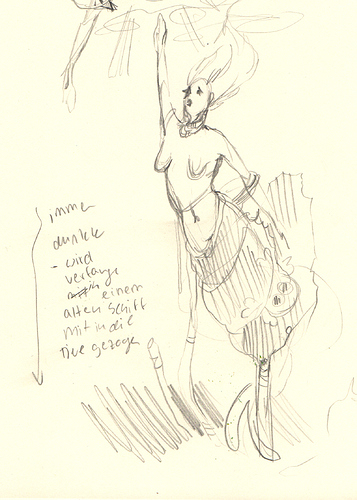 immer
dunkle
- wird
verfange
einem
alten Schiff
mit in die
Tiefe gezogen